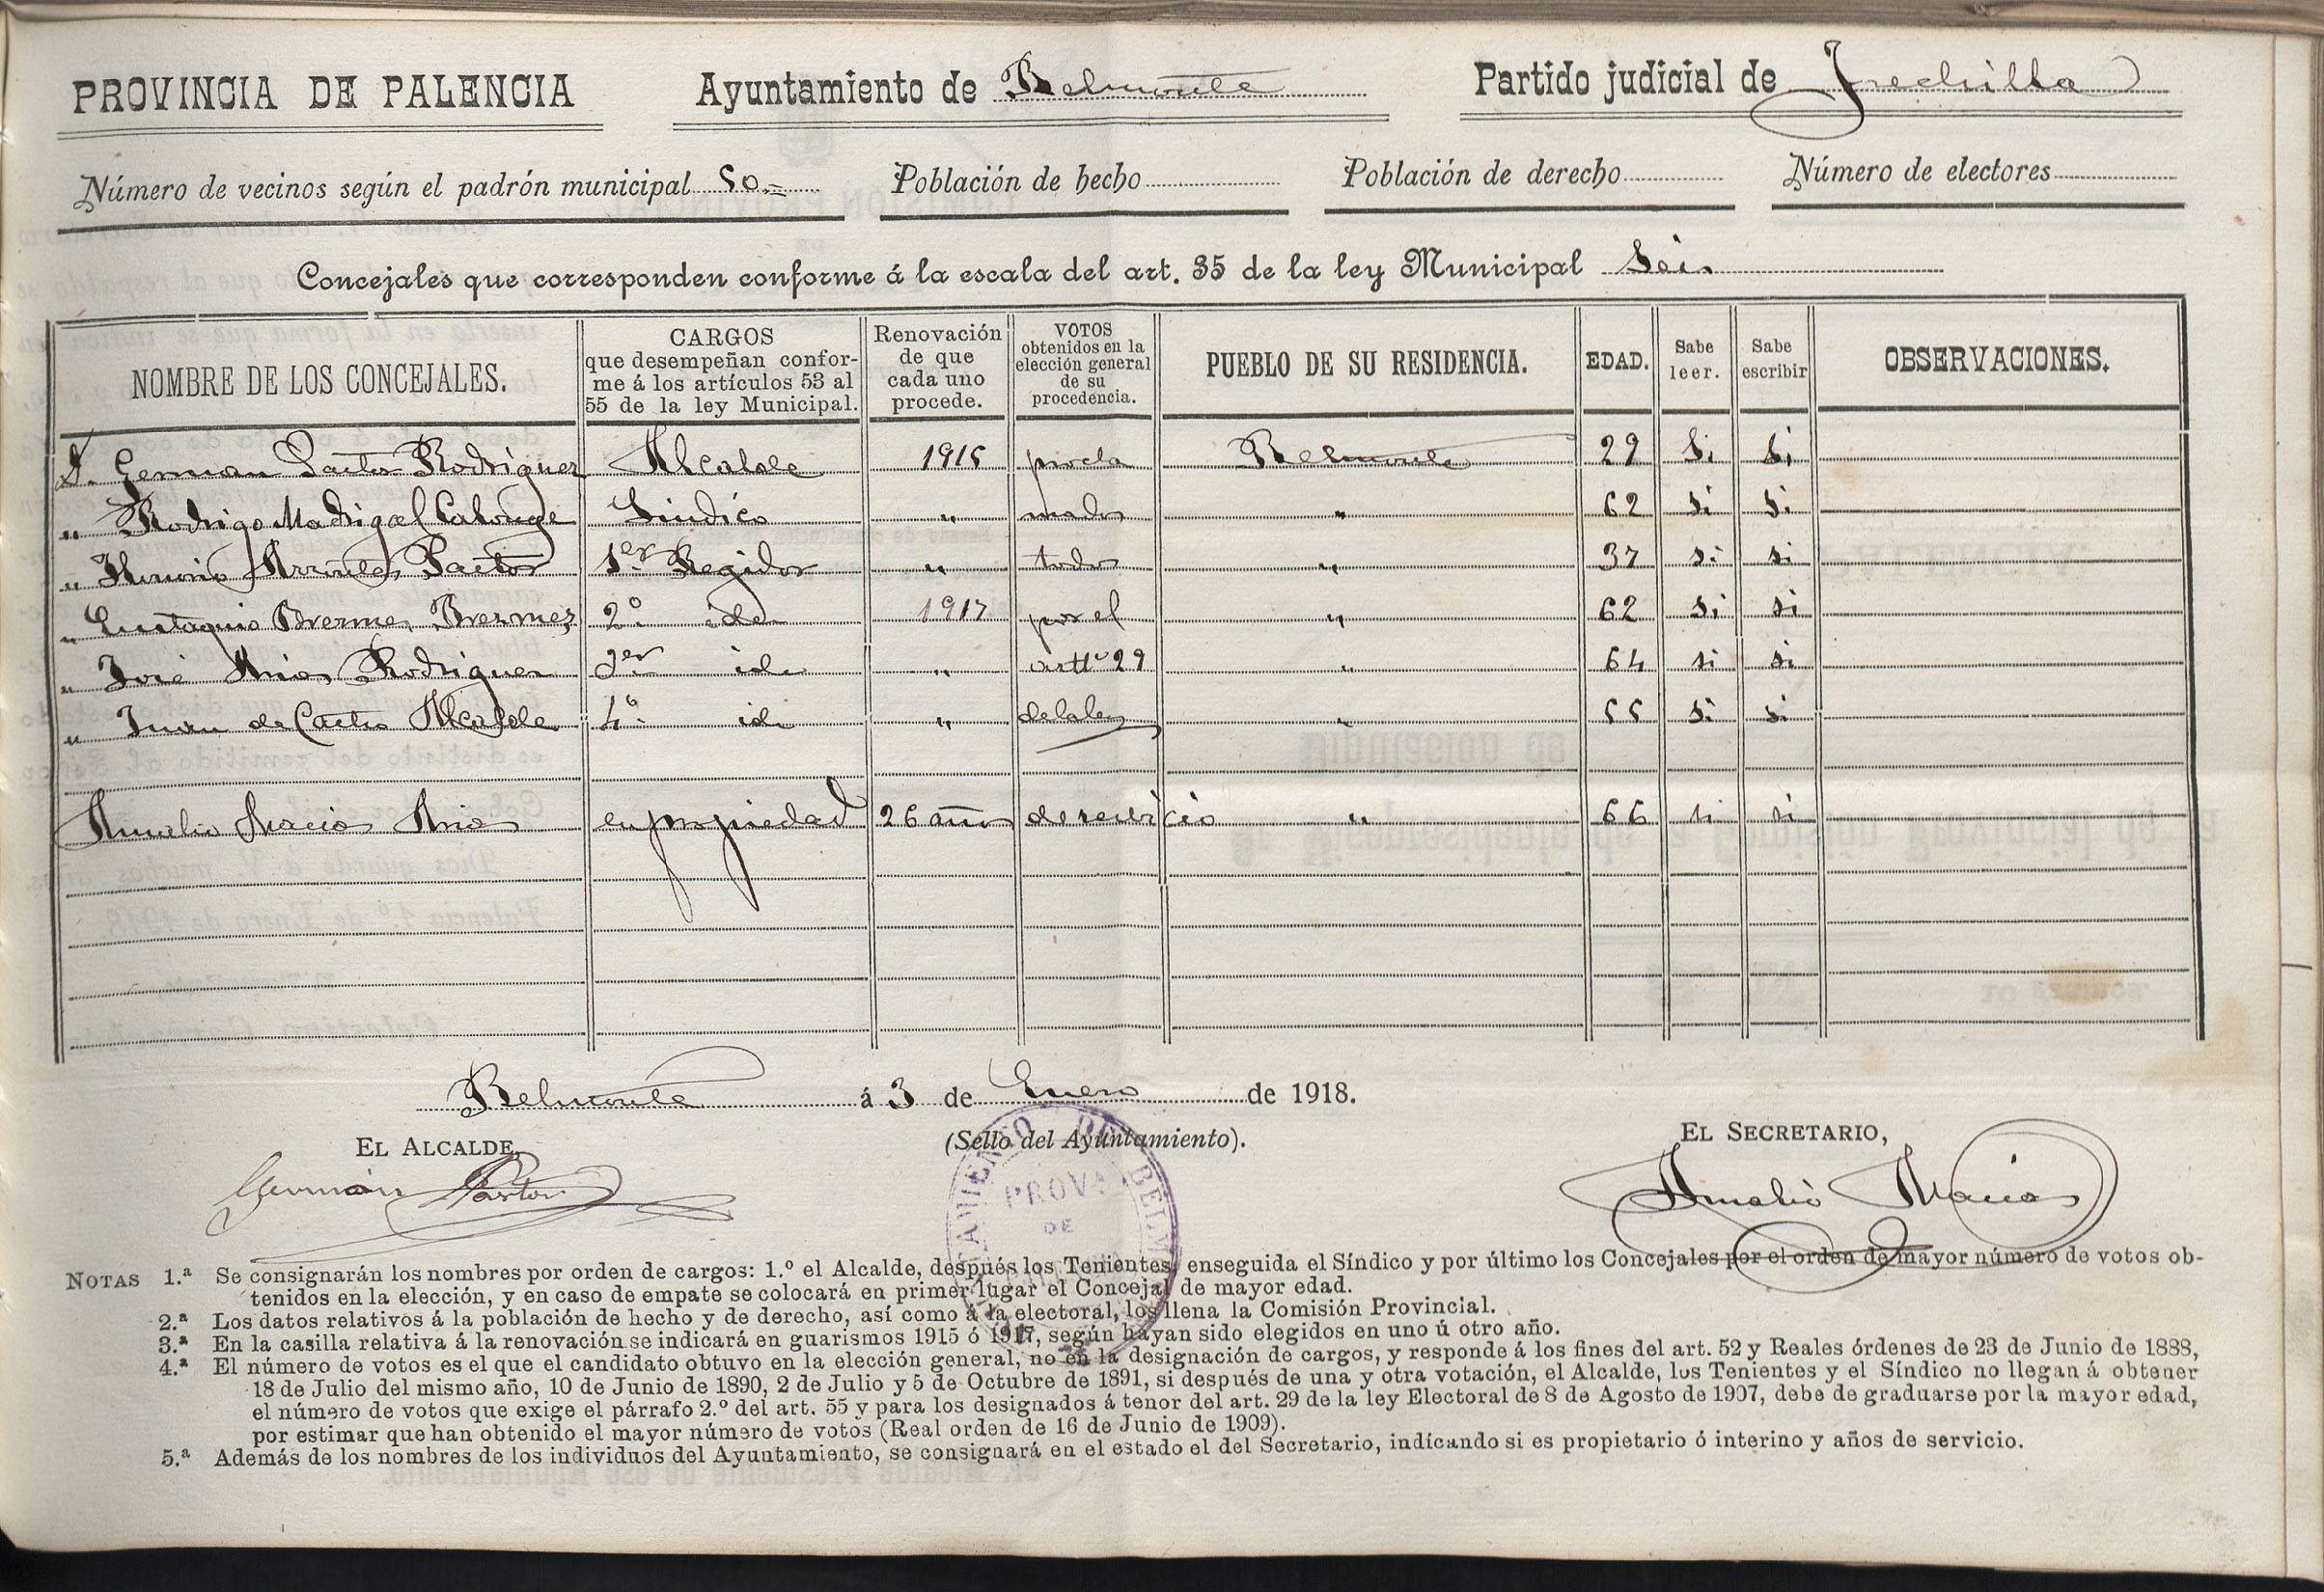 PROVINCIA DE PALENCIA Ayuntamiento de Belmonte Partido judicial de Frechilla
Número de vecinos según el padrón municipal 50= Población de hecho Población de derecho Número de electores
Concejales que corresponden conforme á la escala del art. 35 de la ley Municipal Seis
NOMBRE DE LOS CONCEJALES. CARGOS que desempeñan confor- me á los artículos 53 al 55 de la ley Municipal. Renovación de que cada uno procede. VOTOS obtenidos en la elección general de su procedencia. PUEBLO DE SU RESIDENCIA. EDAD. Sabe leer. Sabe escribir OBSERVACIONES.
D. German Pastor Rodriguez Alcalde 1915 procla Belmonte 29 Si Si
" Rodrigo Madrigal Calonge Sindico " mados " 62 si si
" Pastor 1er Regidor " todos " 37 si si
" Eustaquio Bermez Bermez 2º id 1917 por el " 62 si si
" José Arias Rodriguez 3er id " artº 29 " 64 si si
" Juan de Castro Alcalde 4º id " de la ley " 55 si si
Amalio Macias Arias en propiedad 26 años de servicio " 66 si si
Belmonte á 3 de Enero de 1918.
EL ALCALDE, (Sello del Ayuntamiento). EL SECRETARIO,
German Pastor Amalio Macias
AYUNTAMIENTO DE BELMONTE
PROVA
DE
NOTAS 1.ª Se consignarán los nombres por orden de cargos: 1.º el Alcalde, después los Tenientes, enseguida el Síndico y por último los Concejales por el orden de mayor número de votos ob-
tenidos en la elección, y en caso de empate se colocará en primer lugar el Concejal de mayor edad.
2.ª Los datos relativos á la población de hecho y de derecho, así como á la electoral, los llena la Comisión Provincial.
3.ª En la casilla relativa á la renovación se indicará en guarismos 1915 ó 1917, según hayan sido elegidos en uno ú otro año.
4.ª El número de votos es el que el candidato obtuvo en la elección general, no en la designación de cargos, y responde á los fines del art. 52 y Reales órdenes de 23 de Junio de 1888,
18 de Julio del mismo año, 10 de Junio de 1890, 2 de Julio y 5 de Octubre de 1891, si después de una y otra votación, el Alcalde, los Tenientes y el Síndico no llegan á obtener
el número de votos que exige el párrafo 2.º del art. 55 y para los designados á tenor del art. 29 de la ley Electoral de 8 de Agosto de 1907, debe de graduarse por la mayor edad,
por estimar que han obtenido el mayor número de votos (Real orden de 16 de Junio de 1909).
5.ª Además de los nombres de los individuos del Ayuntamiento, se consignará en el estado el del Secretario, indicando si es propietario ó interino y años de servicio.